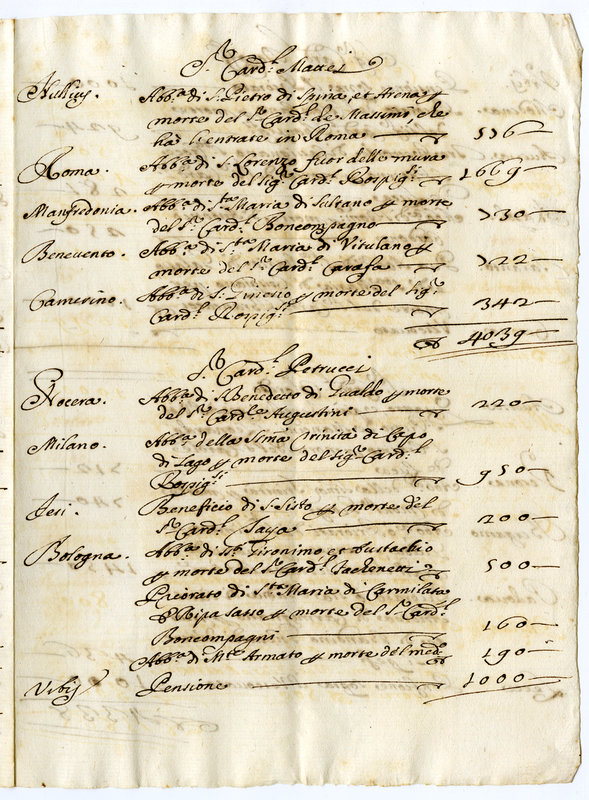 S.r Card.l Mattei
Nullius. Abb.a di S. Pietro di Spina, et Arena p
morte del S.r Card.l de Massimi, che
hà l'entrate in Roma 536
Roma. Abb.a di S. Lorenzo fuor delle mura
p morte del Sig.r Card.l Rospig.si 1669
Manfredonia. Abb.a di S.ta Maria di p morte
del S.r Card.l Boncompagno 730
Benevento. Abb.a di S.ta Maria di Vitulano p
morte del S.r Card.l Carafa 722
Camerino. Abb.a di S. p morte del Sig.r
Card.l Rospig.si 342
4039
S.r Card.l Petrucci
Nocera. Abb.a di S. Benedetto di Gualdo p morte
del S.r Card.le Augustini 220
Milano. Abb.a della S.ma Trinità di Capo
di Lago p morte del Sig.r Card.l
Rospig.si 950
Jesi. Beneficio di S. Sisto p morte del
S.r Card.l 200
Bologna. Abb.a di S.ti Gironimo et Eustachio
p morte del S.r Card.l Fachenetti 500
Priorato di S.ta Maria di Carmilata
& Ripa Sasso p morte del S.r Card.l
Boncompagni 160
Abb.a di M.te Armato p morte del med.o 190
Pensione 1000